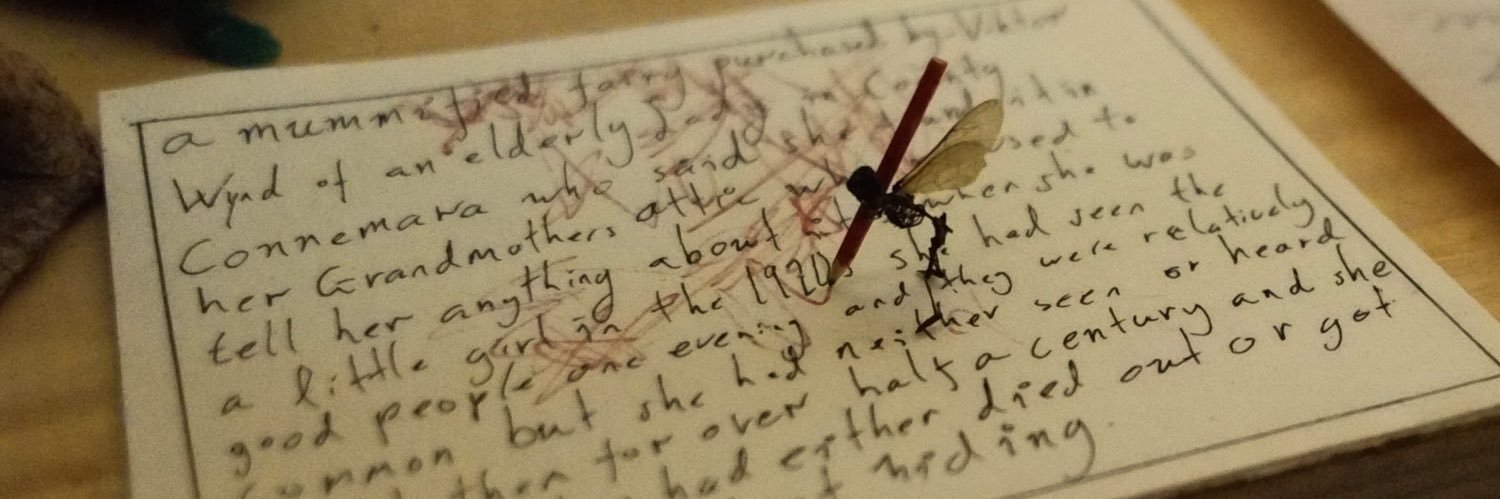 a mummified fairy purchased by Viktor
Wynd of an elderly Lady in County
Connemara who said she found it in
her Grandmothers attic who used to
tell her anything about it when she was
a little girl in the 1920s she had seen the
good people one evening and they were relatively
common but she had neither seen or heard
then for over half a century and she
had either died out or got
hiding.